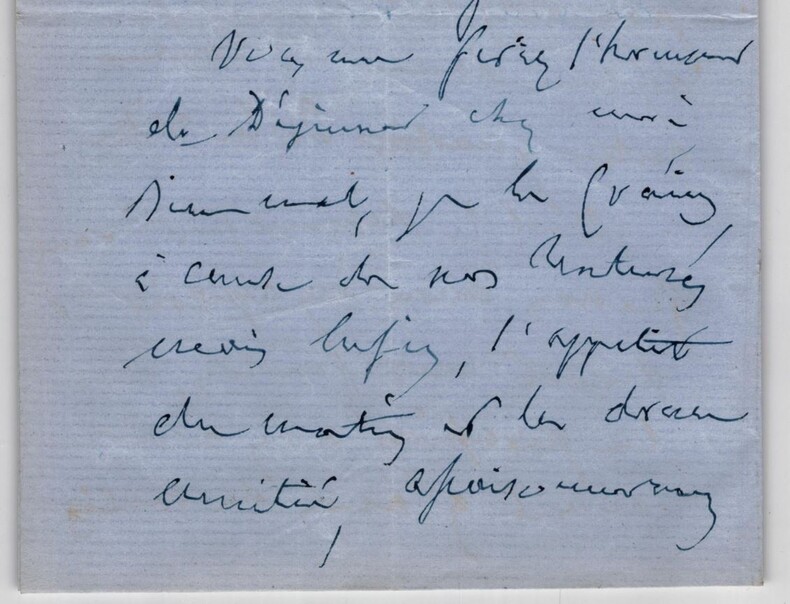 Vous me ferez l'honneur
de Déjeuner chez moi
mal, je le crains,
à cause de nos
mais enfin, l'appetit
du matin et la douce
amitié,